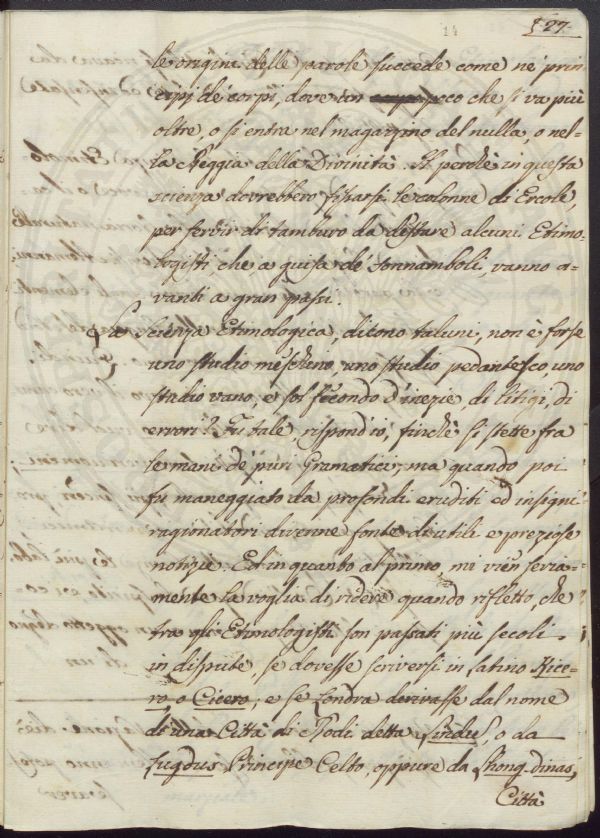 14
§ 27.
le origini delle parole succede come ne' prin-
cipj de' corpi, dove poco che si va più
oltre, o si entra nel magazzino del nulla, o nel-
la Reggia della Divinità. Il perchè in questa
scienza dovrebbero fissarsi le colonne di Ercole,
per servir di tamburo da destare alcuni Etimo-
logisti che a guisa de' sonnamboli, vanno a-
vanti a gran passi.
La Scienza Etimologica, dicono taluni, non è forse
uno studio meschino, uno studio pedantesco, uno
studio vano, e sol fecondo d'inezie, di litigj, di
errori? Fu tale rispond'io, finchè si stette fra
le mani de' puri Gramatici; ma quando poi
fu maneggiato da profondi eruditi ed insigni
ragionatori divenne fonte di utili e preziose
notizie. Ed in quanto al primo, mi vien seria-
mente la voglia di ridere quando rifletto, che
tra gli Etimologisti son passati più secoli
in dispute, se dovesse scriversi in latino Kice-
ro, o Cicero; e se Londra derivasse dal nome
di una Città di Rodi detta Lindus, o da
Lugdus Principe Celto, oppure da Lhong-dinas,
Città